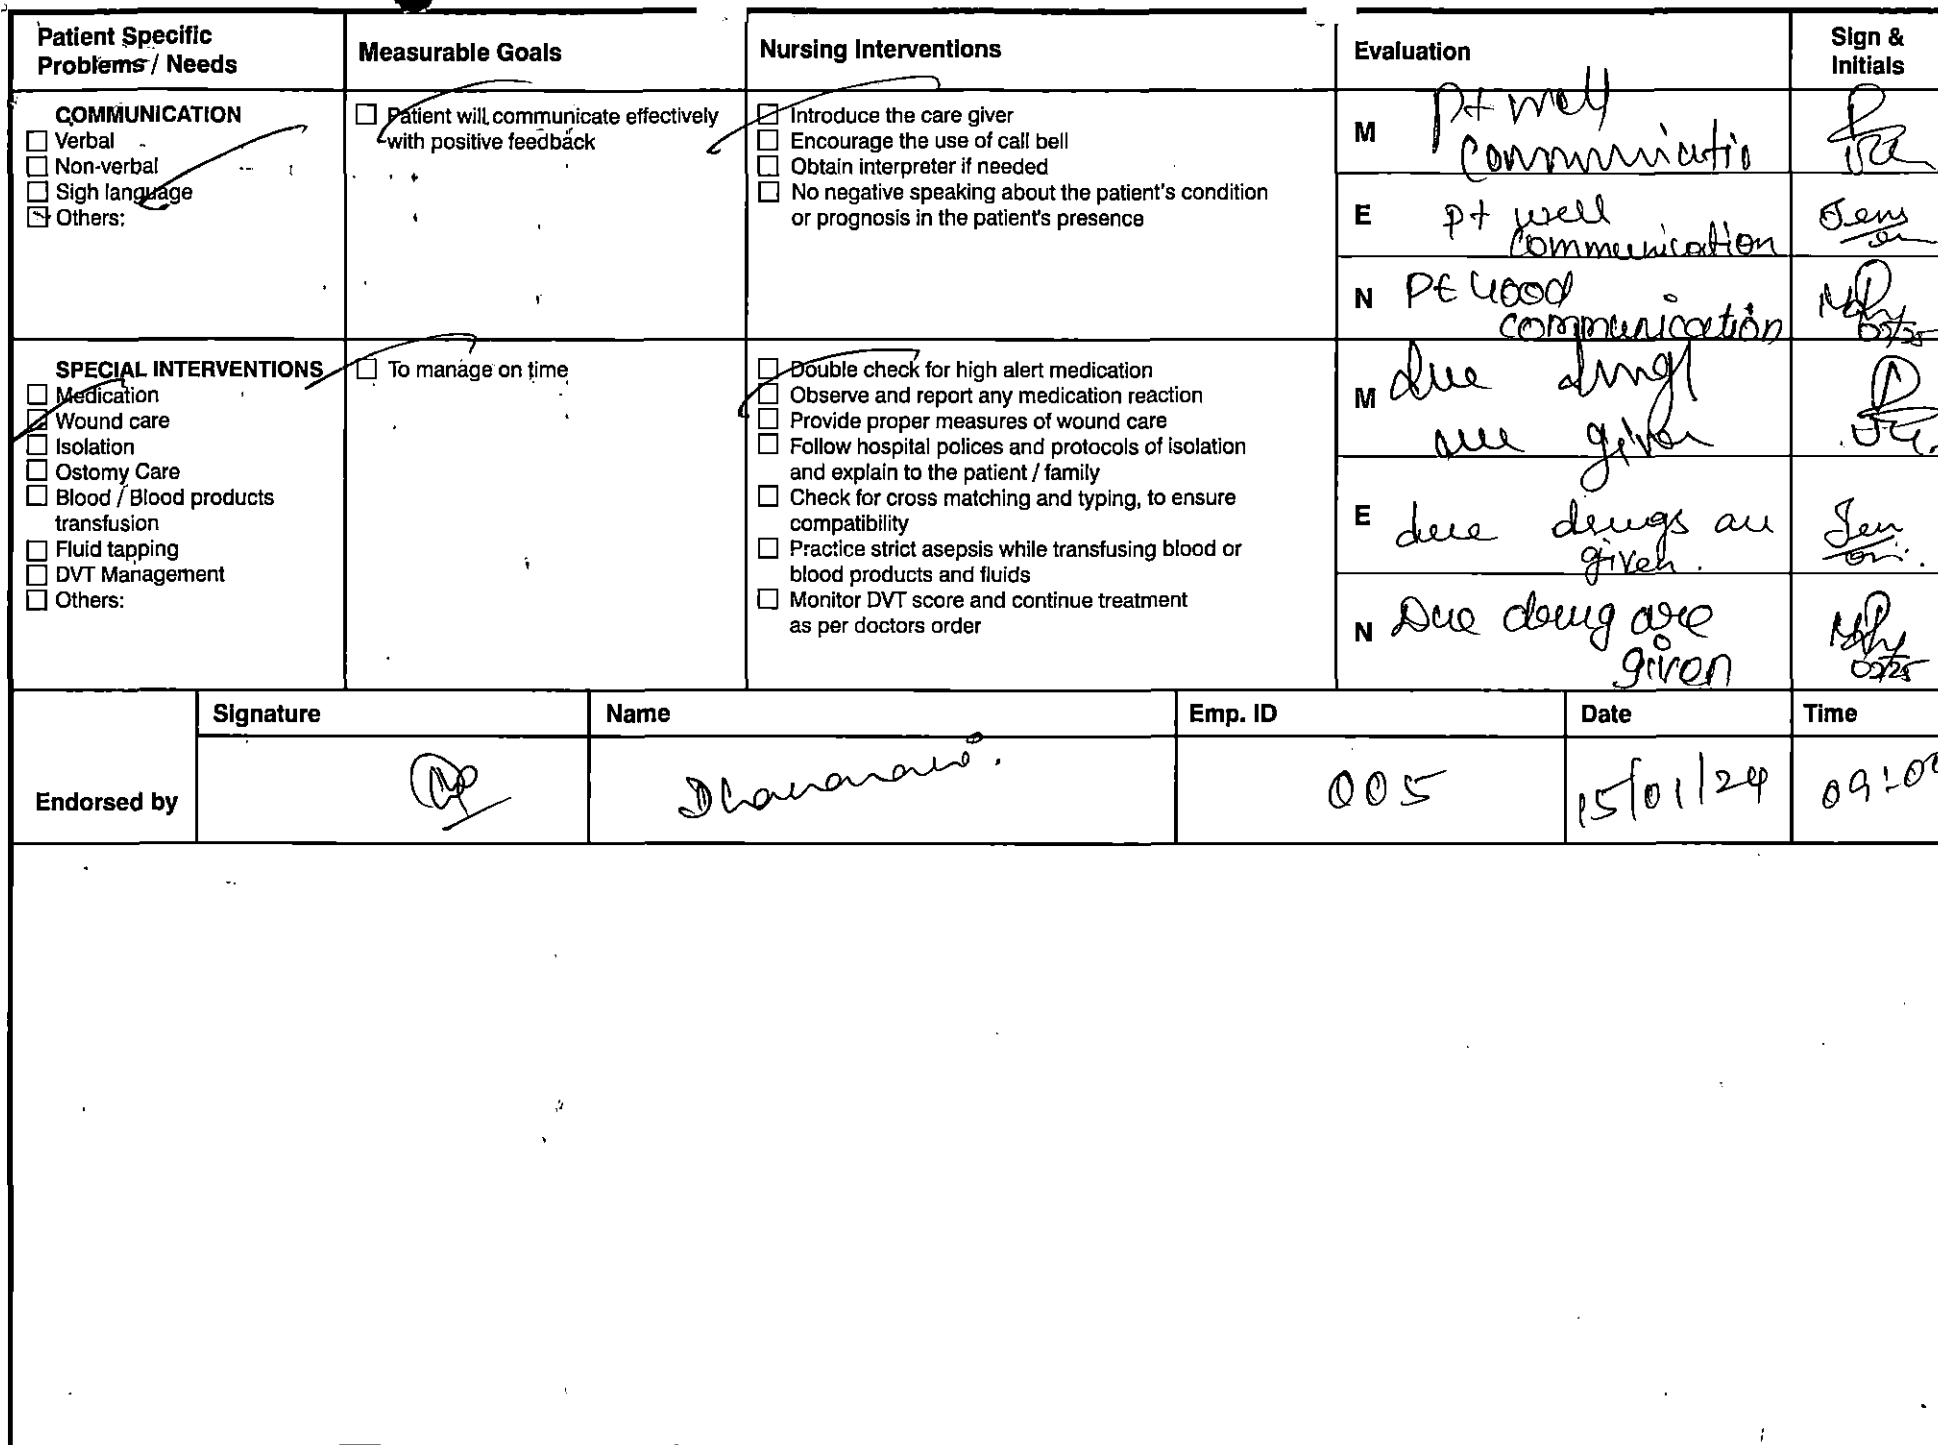 Patient Specific
Problems / Needs
Measurable Goals
Nursing Interventions
Evaluation
Sign &
Initials
COMMUNICATION
Verbal
Non-verbal
Sigh language
Others:
Patient will communicate effectively
with positive feedback
Introduce the care giver
Encourage the use of call bell
Obtain interpreter if needed
No negative speaking about the patient's condition
or prognosis in the patient's presence
M Pt well
communicatio
E pt well
communication
N Pt Good
communication
SPECIAL INTERVENTIONS
Medication
Wound care
Isolation
Ostomy Care
Blood / Blood products
transfusion
Fluid tapping
DVT Management
Others:
To manage on time
Double check for high alert medication
Observe and report any medication reaction
Provide proper measures of wound care
Follow hospital polices and protocols of isolation
and explain to the patient / family
Check for cross matching and typing, to ensure
compatibility
Practice strict asepsis while transfusing blood or
blood products and fluids
Monitor DVT score and continue treatment
as per doctors order
M due
given
E due drugs
given.
N Due drug are
given
Signature
Name
Emp. ID
Date
Time
Endorsed by
005
15/01/24
09:00